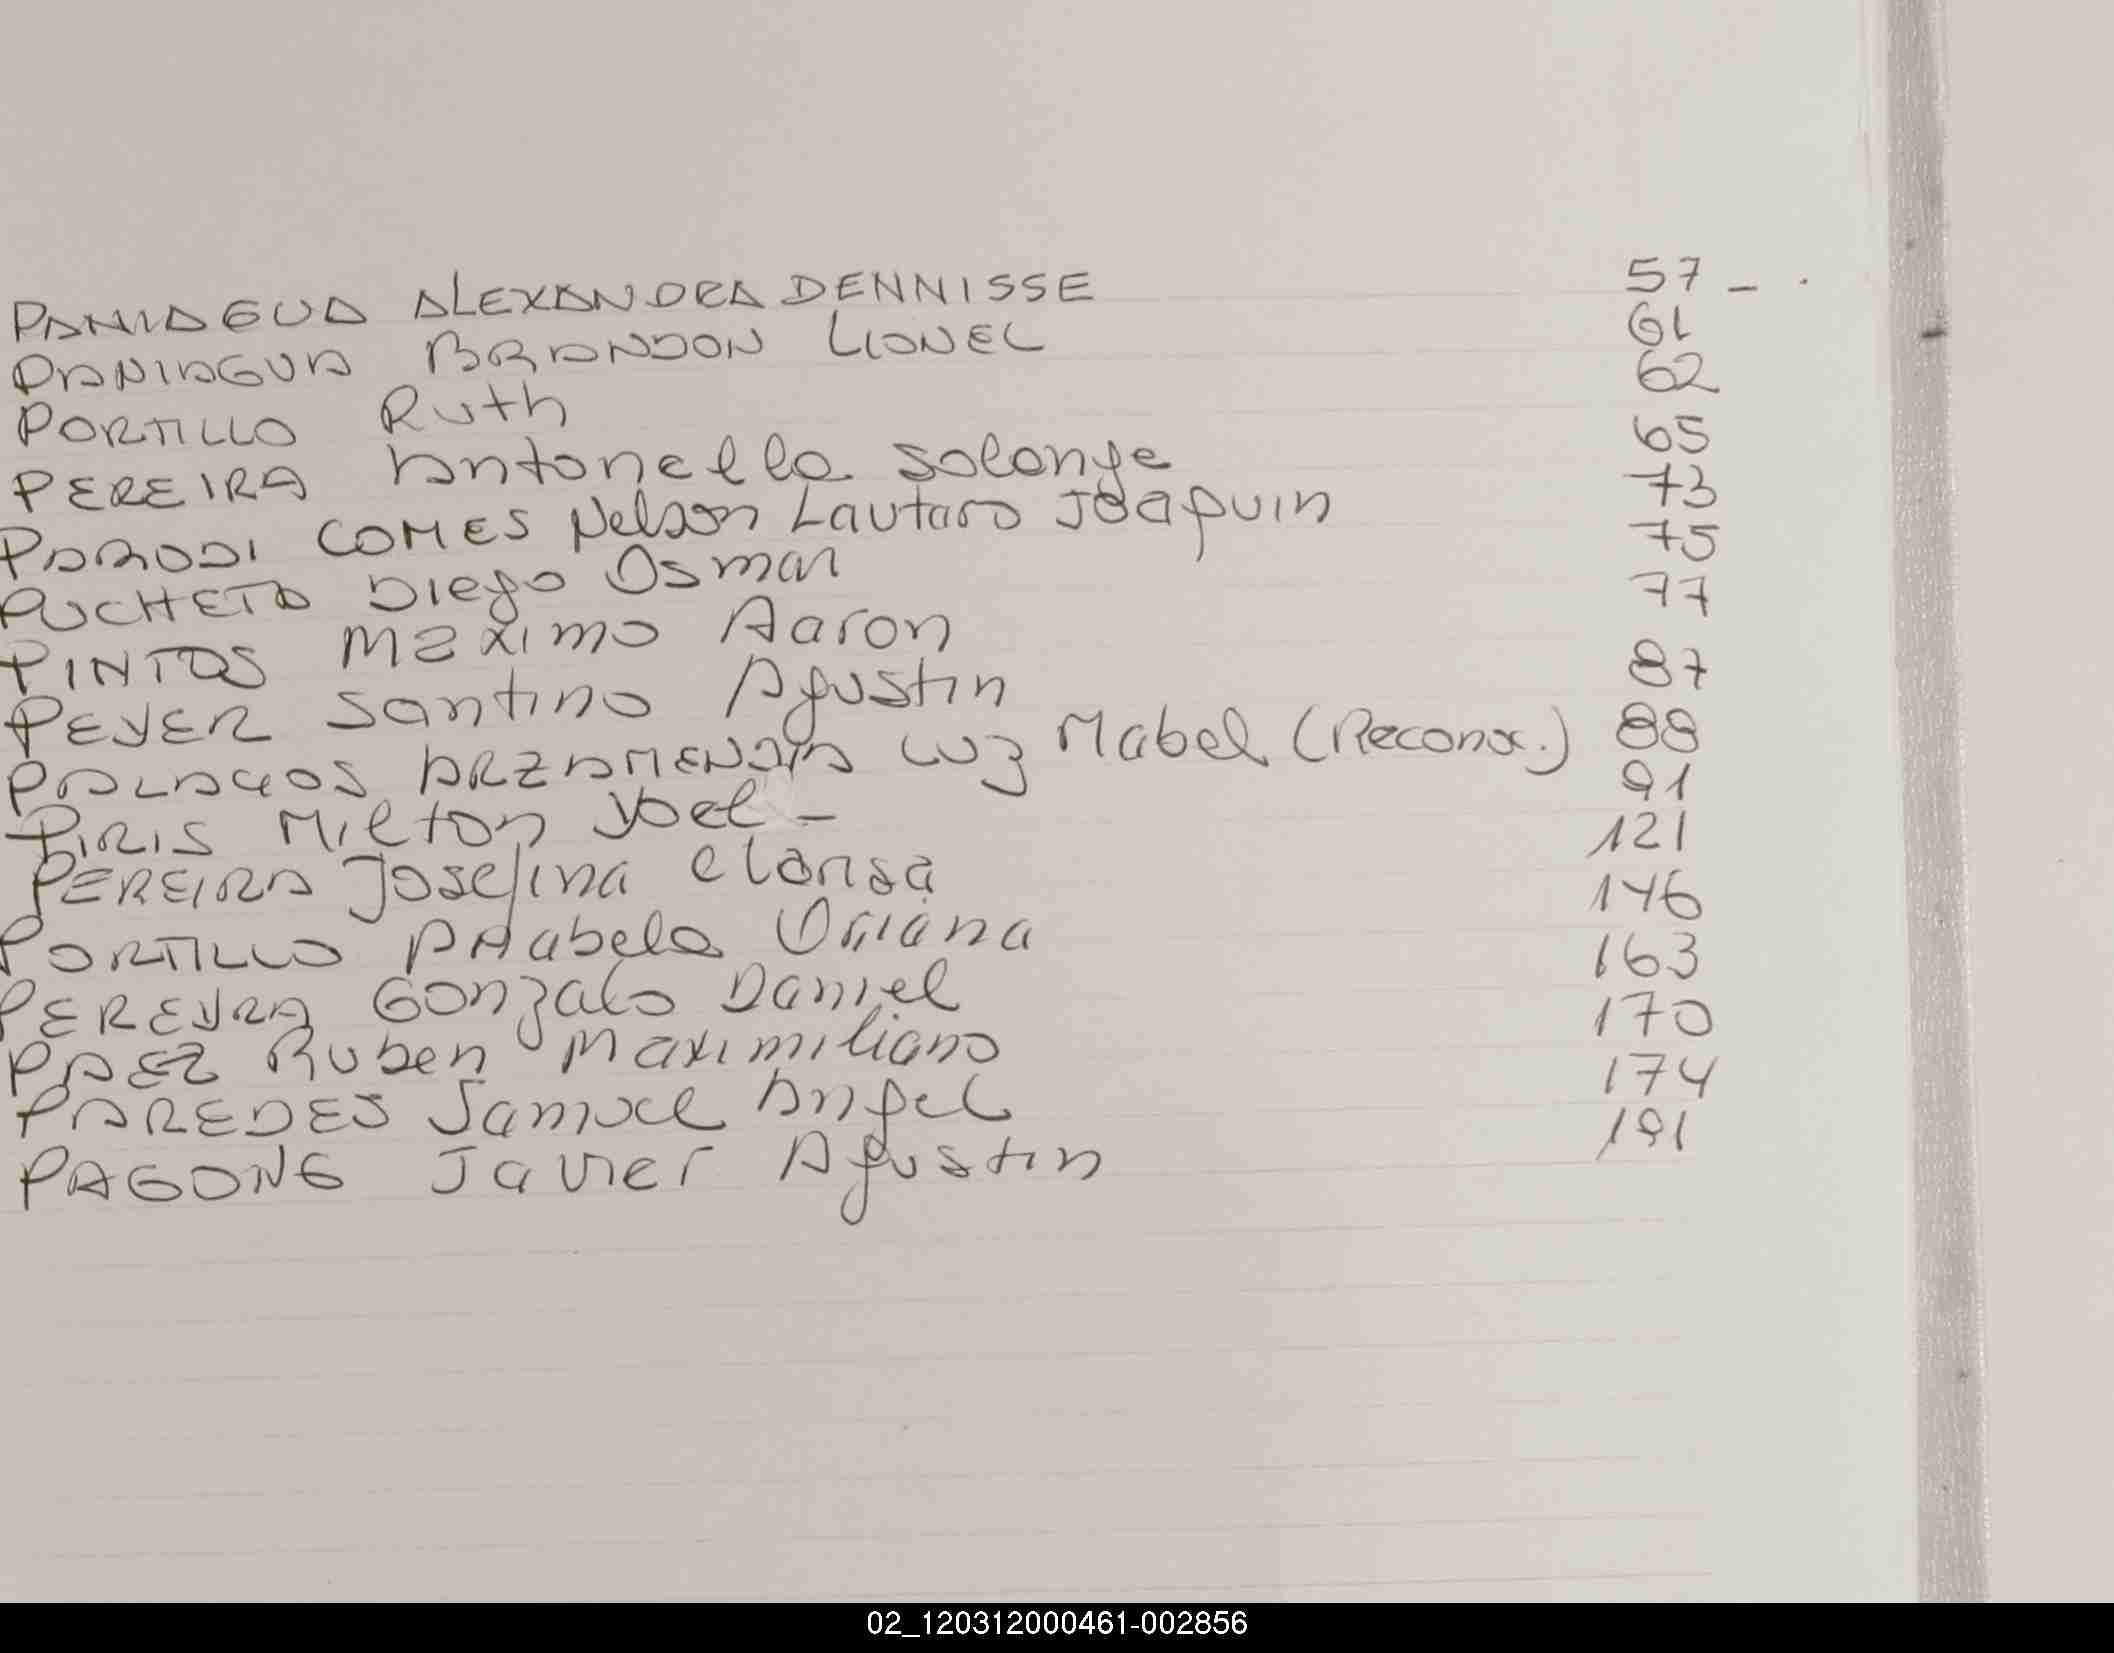 PANIAGUA ALEXANDRA DENNISSE 57 -.
PANIAGUA BRANDON LIONEL 61
PORTILLO Ruth 62
PEREIRA Antonella Solange 65
PARODI COMES Nelson Lautaro Joaquin 73
PUCHETA Diego Osmar 75
PINTOS Maximo Aaron 77
PEYER Santino Agustin 87
PALACIOS ARZAMENDIA Luz Mabel (Reconoc.) 88
PIRIS Milton Yoel - 91
PEREIRA Josefina Clarisa 121
PORTILLO Oriana 146
PEREYRA Gonzalo Daniel 163
PAEZ Ruben Maximiliano 170
PAREDES Samuel Angel 174
PAGONE Javier Agustin 191
02_120312000461-002856